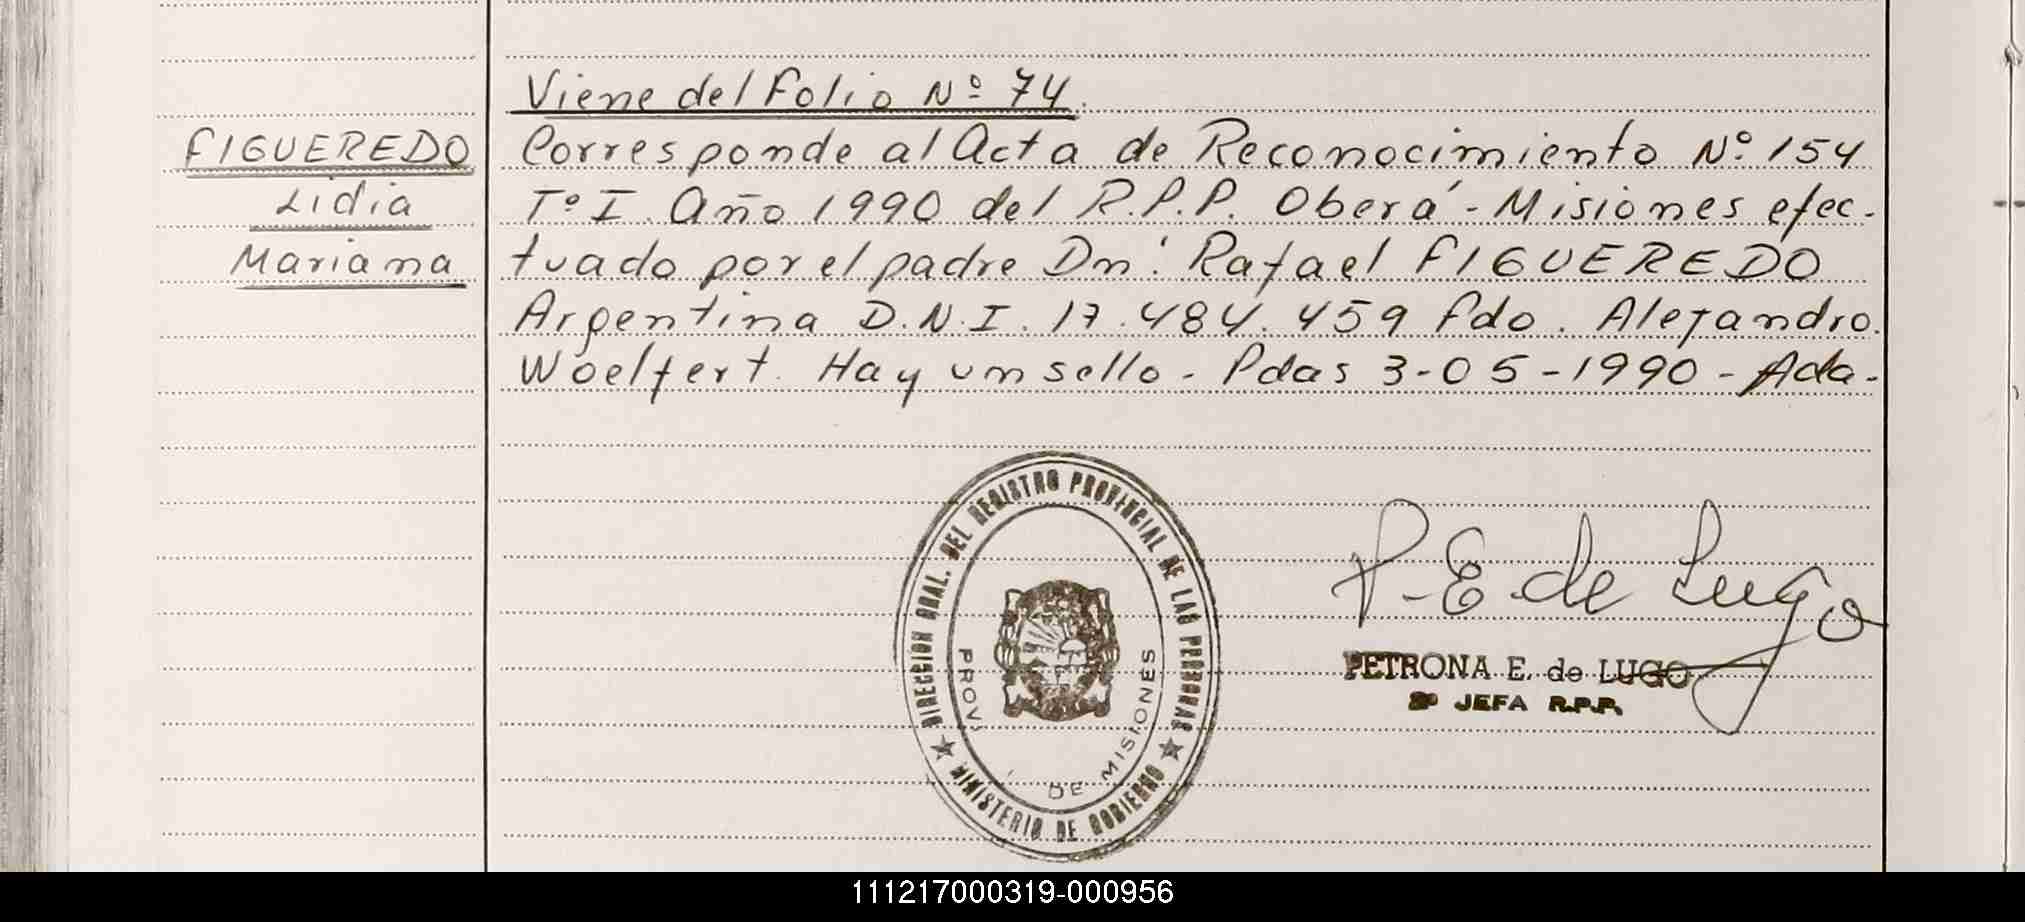 Viene del Folio Nº 74
FIGUEREDO
Lidia
Mariana
Corresponde al Acta de Reconocimiento Nº 154
Tº I. Año 1990 del R.P.P. Oberá - Misiones efec-
tuado por el padre Dn. Rafael FIGUEREDO
Argentina D.N.I. 17.484.459 Fdo. Alejandro
Woelfert. Hay un sello - Pdas 3-05-1990 - Ada.
DIRECCION GRAL. DEL REGISTRO PROVINCIAL DE LAS PERSONAS
PROV. DE MISIONES
MINISTERIO DE GOBIERNO
P. E. de Lugo
PETRONA E. de LUGO
JEFA R.P.P.
111217000319-000956